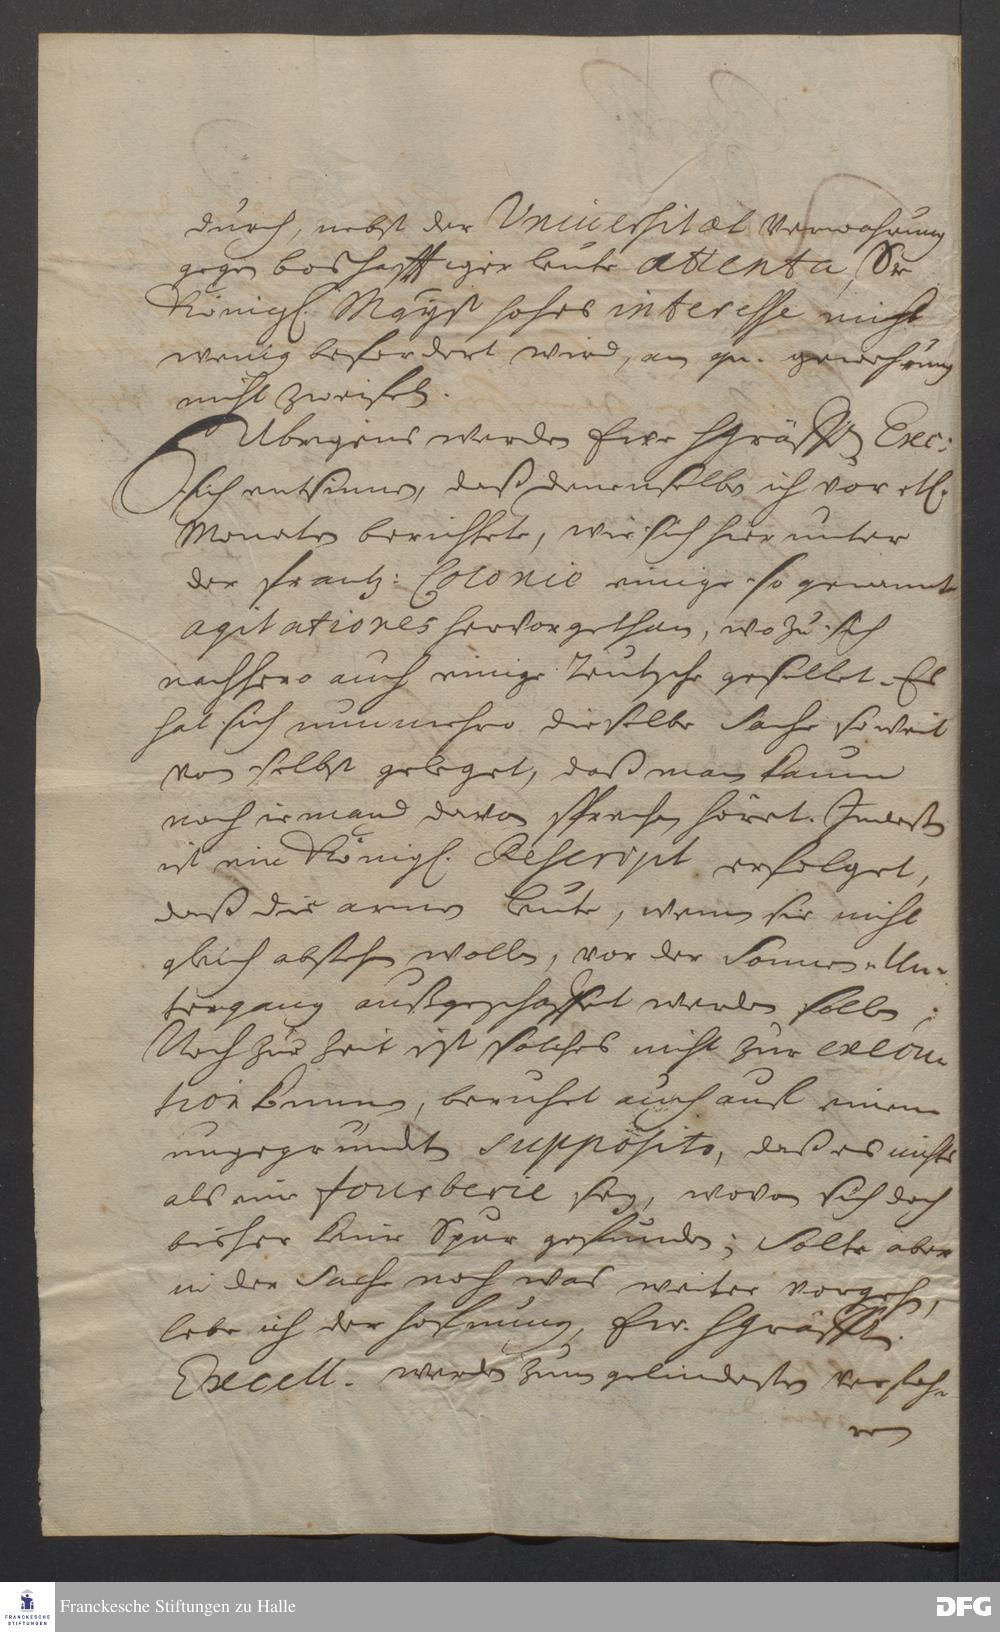 durch, nebst der Universitæt verwahrung
gegen boshafftiger leute attenta, Sr
Königl. Mayst hohes interesse nicht
wenig befordert wird, an gn. gewehrung
nicht zweifeln.
Übrigens werden Ewr HGräffl Exc:
sich entsinnen, daß denenselben ich vor etl.
Monaten berichtete, wie sich hier unter
der frantz: Colonie einige so genannte
agitationes hervorgethan, wozu sich
nachhero auch einige Teutsche gesellet. Es
hat sich nunmehro dieselbe Sache so weit
von selbst geleget, daß man kaum
noch iemand davon sprechen höret. Indeß
ist ein Königl. Rescript erfolget,
daß die armen leute, wenn sie nicht
gleich abstehen wollen, vor der Sonnen-Un-
tergang außgeschaffet werden sollen;
Noch zur Zeit ist solches nicht zur execu-
tion kommen, beruhet auch auf einem
ungegründten supposito, daß es nichts
als eine fourberie sey, wovon sich doch
bisher keine Spur gefunden; Solte aber
in der Sache noch was weiter vorgehen,
lebe ich der hofnung, Ew. HGräffl.
Excell. werden zum gelindesten verfah-
ren
Franckesche Stiftungen zu Halle
FRANCKESCHE
STIFTUNGEN
DFG